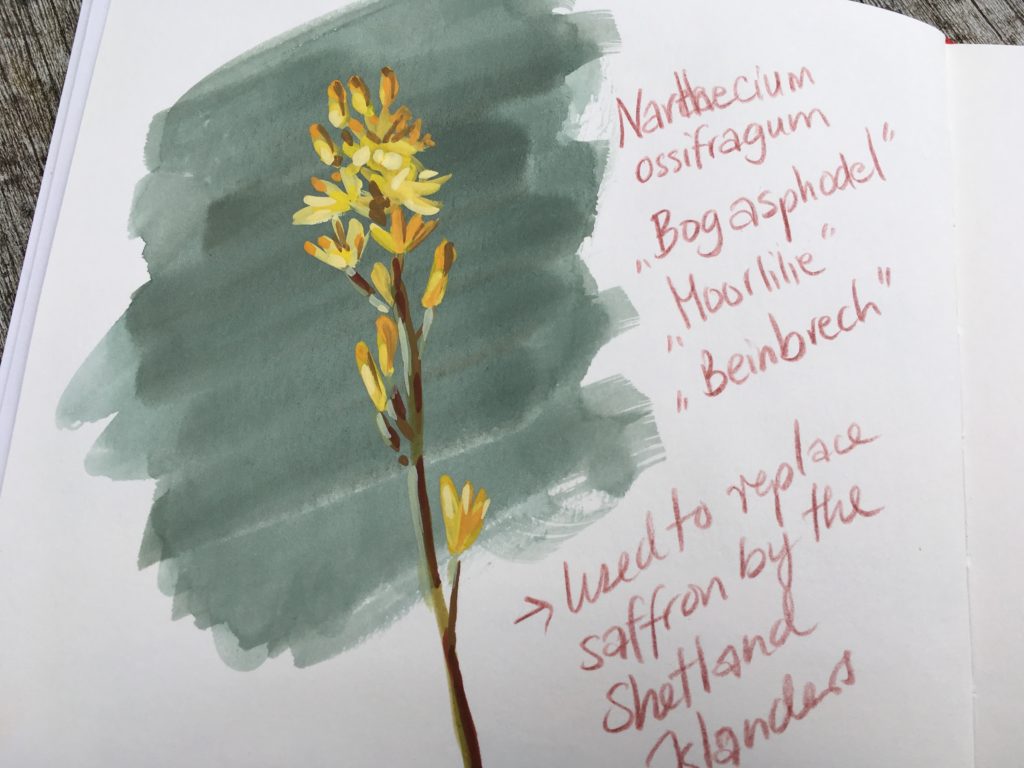 Narthecium
ossifragum
„Bog asphodel”
„Moorlilie“
„Beinbrech”
→ used to replace
saffron by the
Shetland
Islanders